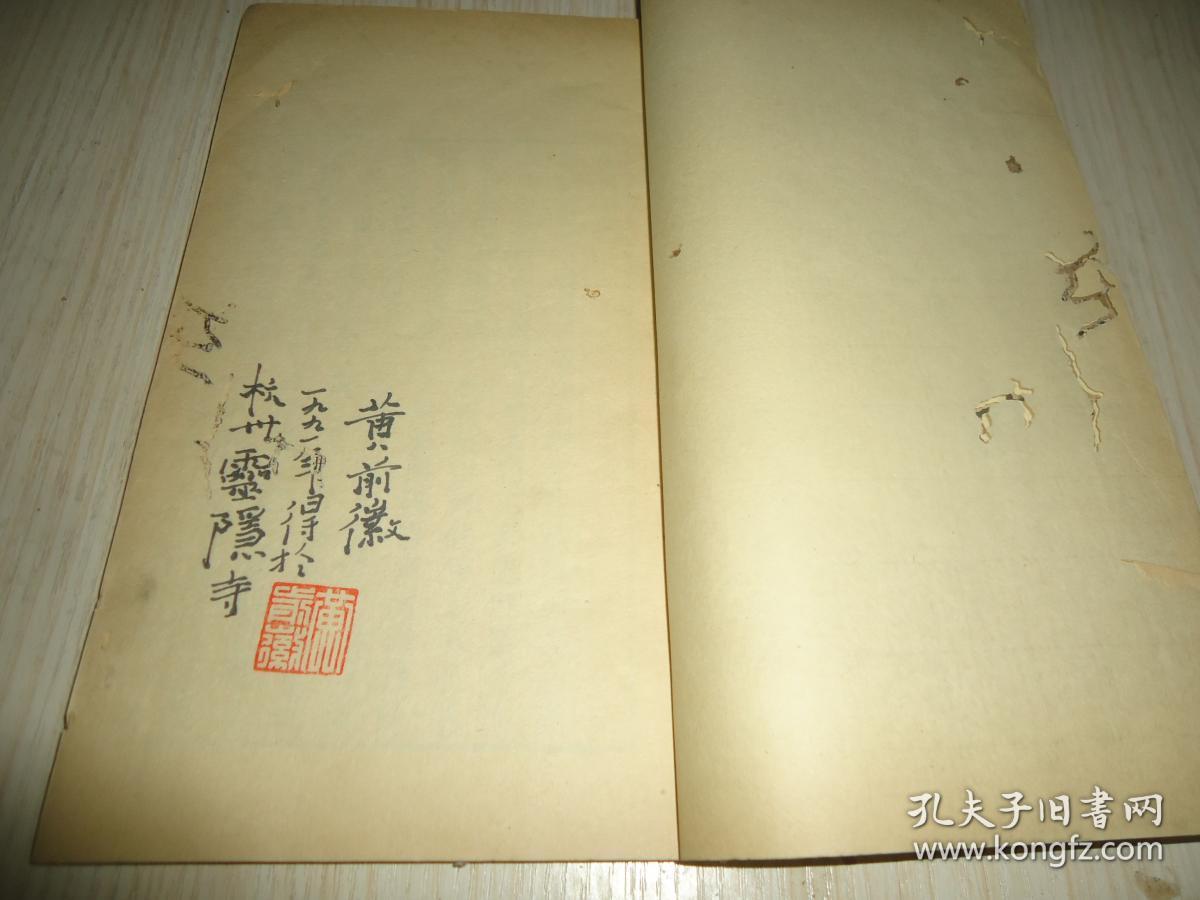 黄前徽
一九九一年得於
杭州靈隱寺
孔夫子旧书网
www.kongfz.com